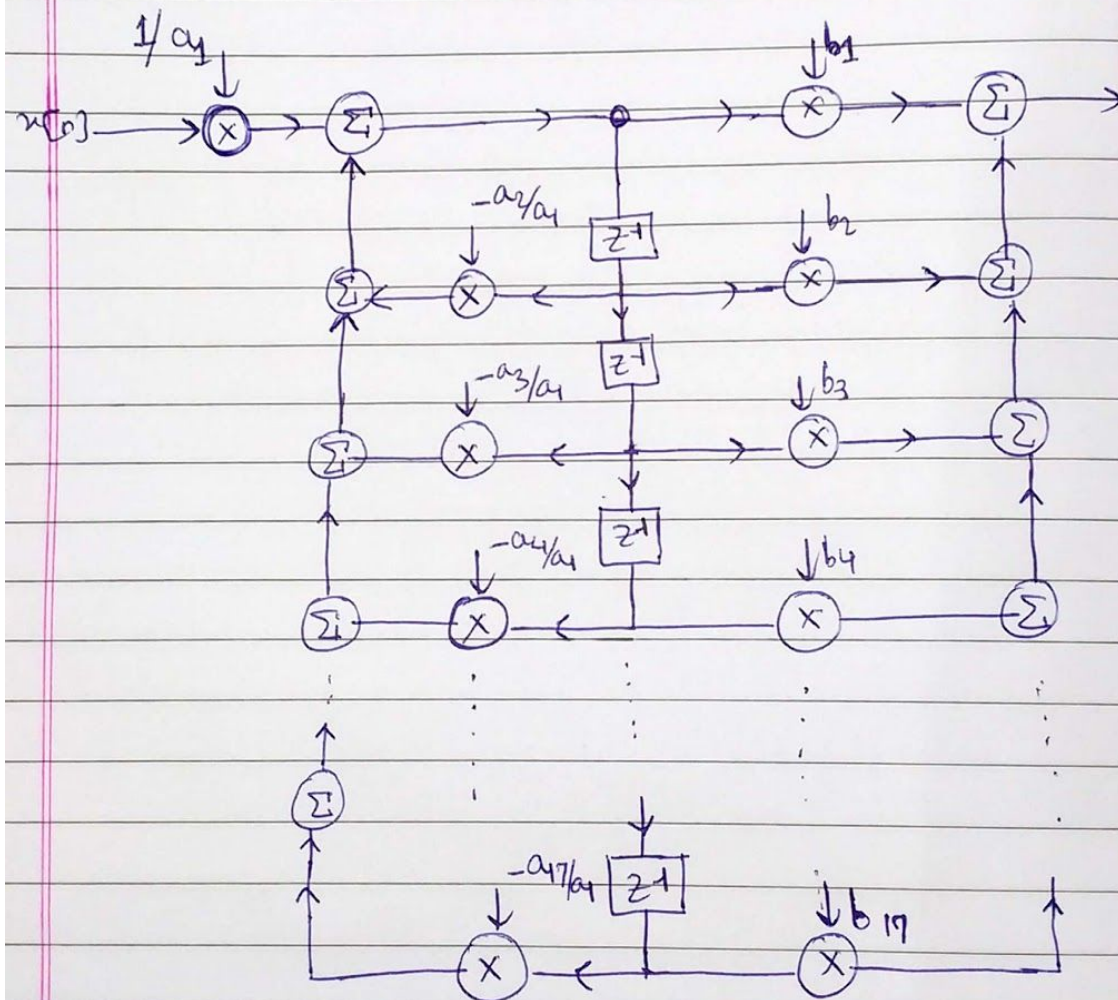 1/a1
x[n] × Σ × b1 Σ
-a2/a1 z-1 b2
Σ × × Σ
z-1
-a3/a1 b3
Σ × × Σ
z-1
-a4/a1 b4
Σ × × Σ
Σ
-a17/a1 z-1 b17
× ×